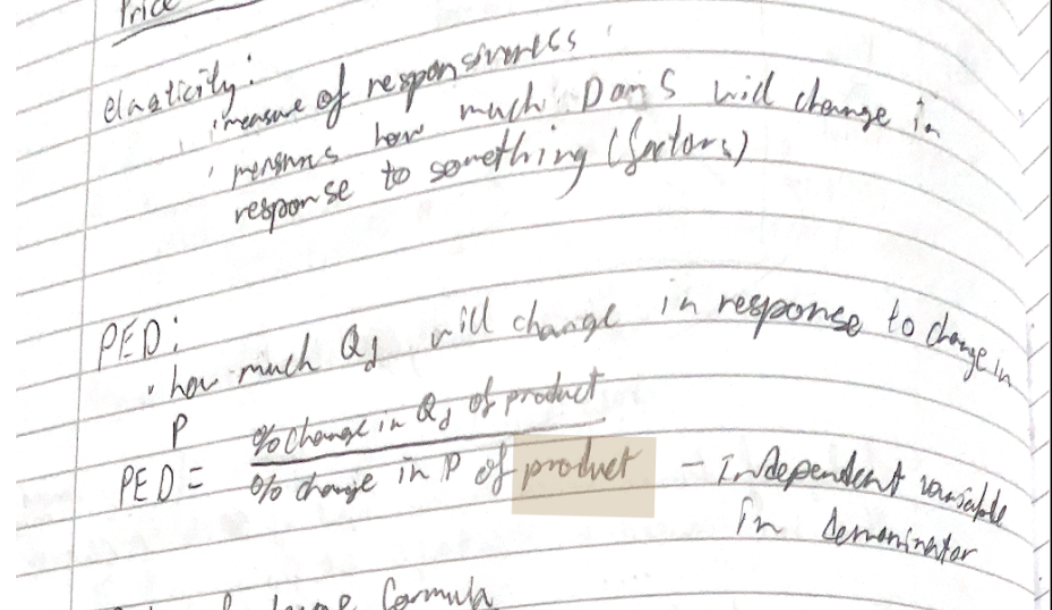 Price
elasticity:
· measure of responsiveness
· measures how much D or S will change in
response to something (factors)
PED:
· how much Qd will change in response to change in
P
% change in Qd of product
PED = % change in P of product - Independent variable
in denominator
formula